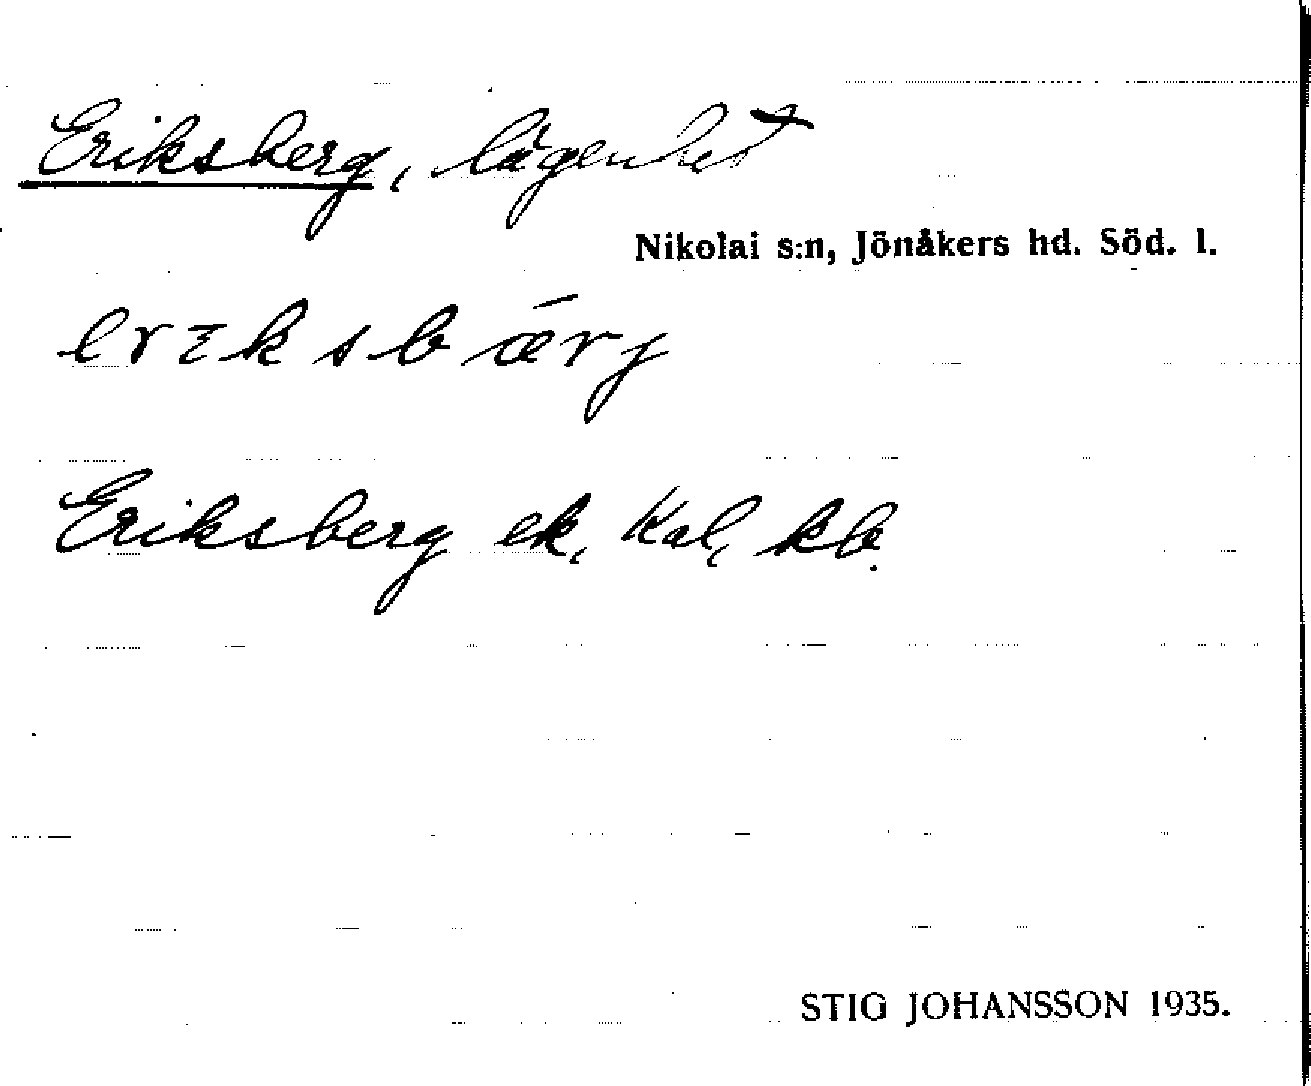 Eriksberg, lägenhet
Nikolai s:n, Jönåkers hd. Söd. l.
erıksbǽrj
Eriksberg ek, Kal, kb.
STIG JOHANSSON 1935.